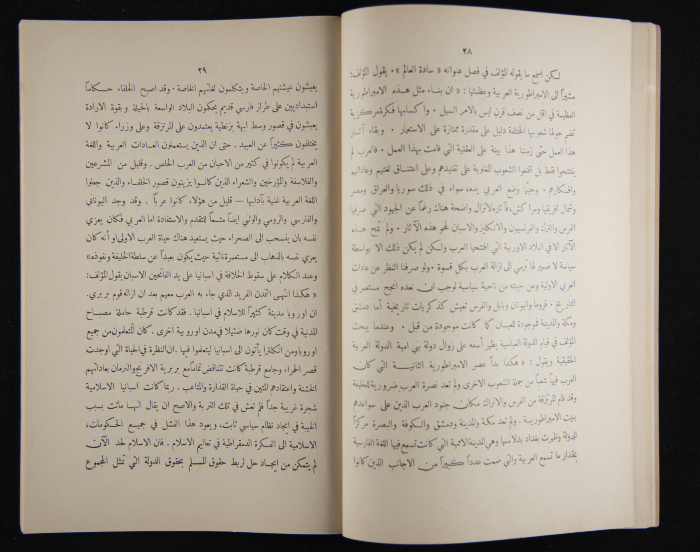 ٢٨
لكن اسمع ما يقوله المؤلف في فصل عنوانه « سادة العالم » ، يقول المؤلف :
مشيراً الى الامبراطورية العربية وعظمتها : « ان بناء مثل هذه الامبراطورية
العظيمة في اقل من نصف قرن ليس بالامر السهل . واكسابها فكرة مركزية
تضم حولها شعوبها المختلفة دليل على مقدرة ممتازة على الاستعمار . وبقاء آثار
هذا العمل حتى زمننا هذا بينة على العقلية التي قامت بهذا العمل . فالعرب لم
يفتتحوا فقط بل اقنعوا الشعوب المغلوبة على تقليدهم وعلى اعتناق لغتهم وعاداتهم
وافكارهم . وحيثما وضع العربي يده سواء في ذلك سوريا والعراق ومصر
وشمال افريقيا ومراكش ، فآثاره لا تزال واضحة هناك رغماً عن الجهود التي صرفها
الفرس والترك والفرنسيون والانكليز والاسبان لمحو هذه الآثار . ولم تمح هذه
الآثار الا في البلاد الاوربية التي افتتحها العرب ولكن لم يكن ذلك الا بواسطة
سياسة لا ضمير لها ترمي الى ازالة العرب بكل قسوة . ولو صرفنا النظر عن عادات
العربي الاولية وعن خيبته من ناحية سياسية لوجب ان نعده انجح مستعمر في
التاريخ . فروما واليونان وبابل والفرس تعيش كذكريات تاريخية أما دمشق
ومكة والمدينة فموجودة للعيان كما كانت موجودة من قبل . وعندما يبحث
المؤلف في قيام الدولة العباسية يظهر أسفه على زوال دولة بني امية الدولة العربية
الحقيقية ويقول : « هكذا بدأ عصر الامبراطورية الثانية التي كان
العرب فيها شعباً من جملة الشعوب الاخرى ولم تعد نصرة العرب ضرورية للخليفة
وقد قام المرتزقة من الفرس والاتراك مكان جنود العرب الذين على سواعدهم
بنيت الامبراطورية . ولم تعد مكة والمدينة ودمشق والكوفة والبصرة مركزاً
للدولة وظهرت بغداد بدلا منها وهي المدينة الاممية التي كانت تسمع فيها اللغة الفارسية
بمقدار ما تسمع العربية والتي ضمت عدداً كبيراً من الاجانب الذين كانوا
٢٩
يعيشون عيشتهم الخاصة ويتكلمون لغاتهم الخاصة . وقد اصبح الخلفاء حكاماً
استبداديين على طراز فارسي قديم يحكمون البلاد الواسعة بالحيلة وبقوة الارادة
يعيشون في قصور وسط ابهة بزنطية يعتمدون على المرتزقة وعلى وزراء كانوا لا
يختلفون كثيراً عن العبيد . حتى ان الذين يستعملون العادات العربية واللغة
العربية لم يكونوا في كثير من الاحيان من العرب الخلص . وقليل من المشرعين
والفلاسفة والمؤرخين والشعراء الذين كانوا يزينون قصور الخلفاء والذين جعلوا
اللغة العربية غنية بآدابها — قليل من هؤلاء كانوا عرباً . وقد وجد اليوناني
والفارسي والرومي والوثني ايضاً متسعاً للتقدم والاستفادة اما العربي فكان يعزي
نفسه بان ينسحب الى الصحراء حيث يستعيد هناك حياة العرب الاولى او أنه كان
يعزي نفسه بالذهاب الى مستعمرة نائية حيث يكون بعيداً عن سلطة الخليفة ونفوذه »
وعند الكلام على سقوط الخلافة في اسبانيا على يد الفاتحين الاسبان يقول المؤلف :
« هكذا انتهى التمدن الفريد الذي جاء به العرب معهم بعد ان ازاله قوم بربري .
ان اوروبا مدينة كثيراً للاسلام في اسبانيا . فقد كانت قرطبة حاملة مصباح
المدنية في وقت كان نورها ضئيلا في مدن اوروبية اخرى . كان المتعلمون من جميع
اوروبا ومن انكلترا يأتون الى اسبانيا ليتعلموا فيها . ان النظرة في الحياة التي اوجدت
قصر الحمراء وجامع قرطبة كانت تتناقض تماماً مع بربرية الافرنج والجرمان بعاداتهم
الخشنة واعتقادهم المتين في حياة القذارة والمتاعب . ربما كانت اسبانيا الاسلامية
شجرة غريبة جداً فلم تعش في تلك التربة والاصح ان يقال انها ماتت بسبب
الخيبة في ايجاد نظام سياسي ثابت ، ويعود هذا الفشل في جميع الحكومات ،
الاسلامية الى الفكرة الدمقراطية في تعاليم الاسلام . فان الاسلام لحد الآن
لم يتمكن من ايجاد حل لربط حقوق المسلم بحقوق الدولة التي تمثل المجموع